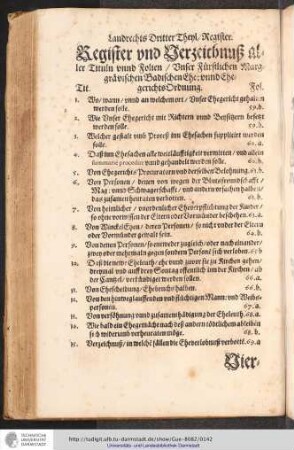 Landrechts Dritter Theyl, Register.
Register vnd Verzeichnuß al-
ler Tituln vnnd Folien / Unser Fürstlichen Marg-
grävischen Badischen Ehe: vnnd Ehe-
gerichts Ordnung.
Tit. Fol.
1. Wo / wann / vnnd an welchem ort / Unser Ehegericht gehalten
werden solle. 59.b.
2. Wie Unser Ehegericht mit Richtern vnnd Beysitzern besetzt
werden solle. 59.b.
3. Welcher gestalt vmb Proceß inn Ehesachen suppliciert werden
solle. 60.a.
4. Daß inn Ehesachen alle weitläuffigkeit vermitten / vnd allein
summarie procediert vnnd gehandelt werden solle. 60.b.
5. Von Ehegerichts / Procuratorn vnd derselben Belohnung. 61.b.
6. Von Personen / denen von wegen der Blutsfreundtschafft /
Mag: vnnd Schwagerschafft / vnd andern vrsachen halben /
das zusamen heuraten verbotten. 61.b.
7. Von heimlicher / Eheverpflichtung der Kinder /
so ohne vorwissen der Eltern oder Vormünder beschehen. 65.a.
8. Von Winckel Ehen / deren Personen / so nicht vnder der Eltern
oder Vormünder gewalt sein. 65.b.
9. Von denen Personen / so entweder zugleich / oder nach einander /
zwey oder mehrmaln gegen sondern Personen sich verloben.
10. Daß die new Eheleuth / ehe vnnd zuvor sie zu Kirchen gehen /
dreymal vnd auff drey Sontag offentlich inn der Kirchen / ab
der Cantzel / verkündiget werden sollen. 66.a.
11. Von Ehescheidung / Ehebruchs halben. 66.b.
12. Von den hinweg lauffenden vnd flüchtigen Mann: vnd Weibs-
personen. 67.a.
13. Von versöhnung vnnd zusamen thädigung der Eheleuth. 68.a.
14. Wie bald ein Ehegemächt nach deß andern tödtlichem ableiben
sich wider vmb verheuraten möge. 68.b.
15. Verzeichnuß / in welchē fällen die Eheverlobnuß verbottē. 69.a
Vier-
http://tudigit.ulb.tu-darmstadt.de/show/Gue-8082/0142
Universitäts- und Landesbibliothek Darmstadt